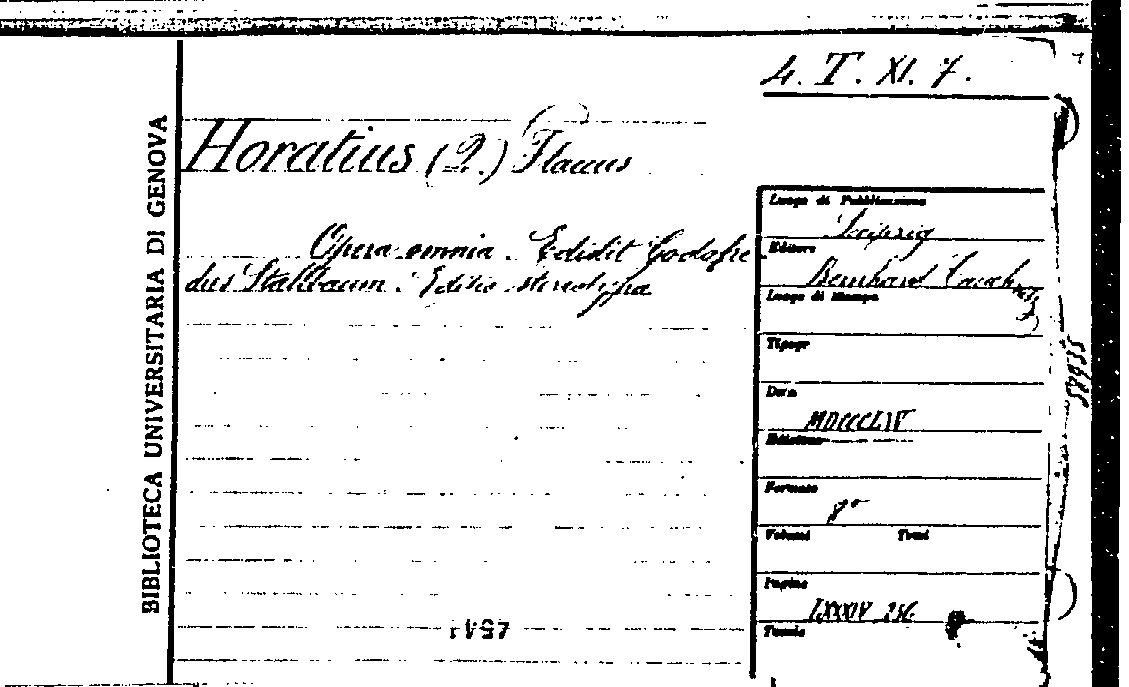 4. T. XI. 7.
BIBLIOTECA UNIVERSITARIA DI GENOVA
Horatius (Q.) Flaccus
Opera omnia. Edidit Godofre
dus Stallbaum. Editio stereotypa
Luogo di Pubblicazione
Leipzig
Editore
Bernhard Tauchnitz
Luogo di Stampa
Tipogr
Data
MDCCCLIV
Edizione
Formato
8°
Volumi Tomi
Pagine
LXXXIV 256
Tavole
58935